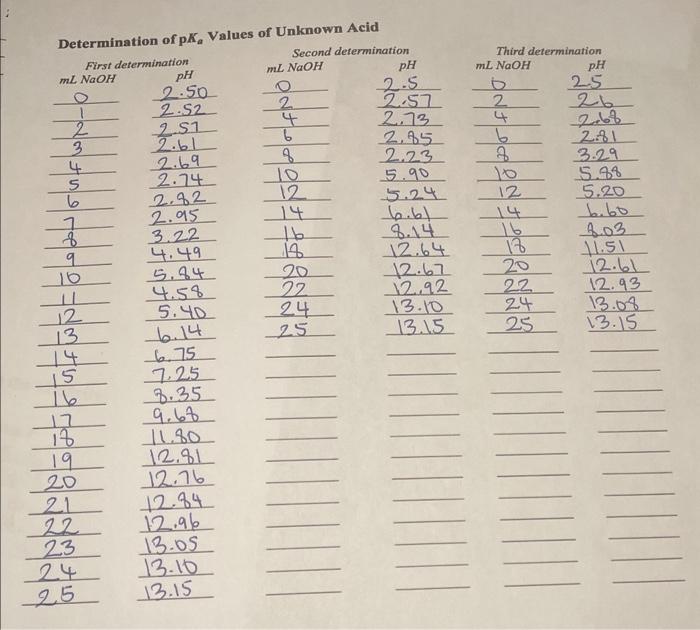 Determination of pKa Values of Unknown Acid
First determination Second determination Third determination
mL NaOH pH mL NaOH pH mL NaOH pH
0 2.50 0 2.5 0 2.5
1 2.52 2 2.57 2 2.6
2 2.57 4 2.73 4 2.68
3 2.61 6 2.85 6 2.81
4 2.69 8 2.23 8 3.29
5 2.74 10 5.90 10 5.88
6 2.82 12 5.24 12 5.20
7 2.95 14 6.61 14 6.60
8 3.22 16 8.14 16 8.03
9 4.49 18 12.64 18 11.51
10 5.84 20 12.67 20 12.61
11 4.58 22 12.92 22 12.93
12 5.40 24 13.10 24 13.08
13 6.14 25 13.15 25 13.15
14 6.75
15 7.25
16 8.35
17 9.68
18 11.80
19 12.81
20 12.76
21 12.84
22 12.96
23 13.05
24 13.10
25 13.15